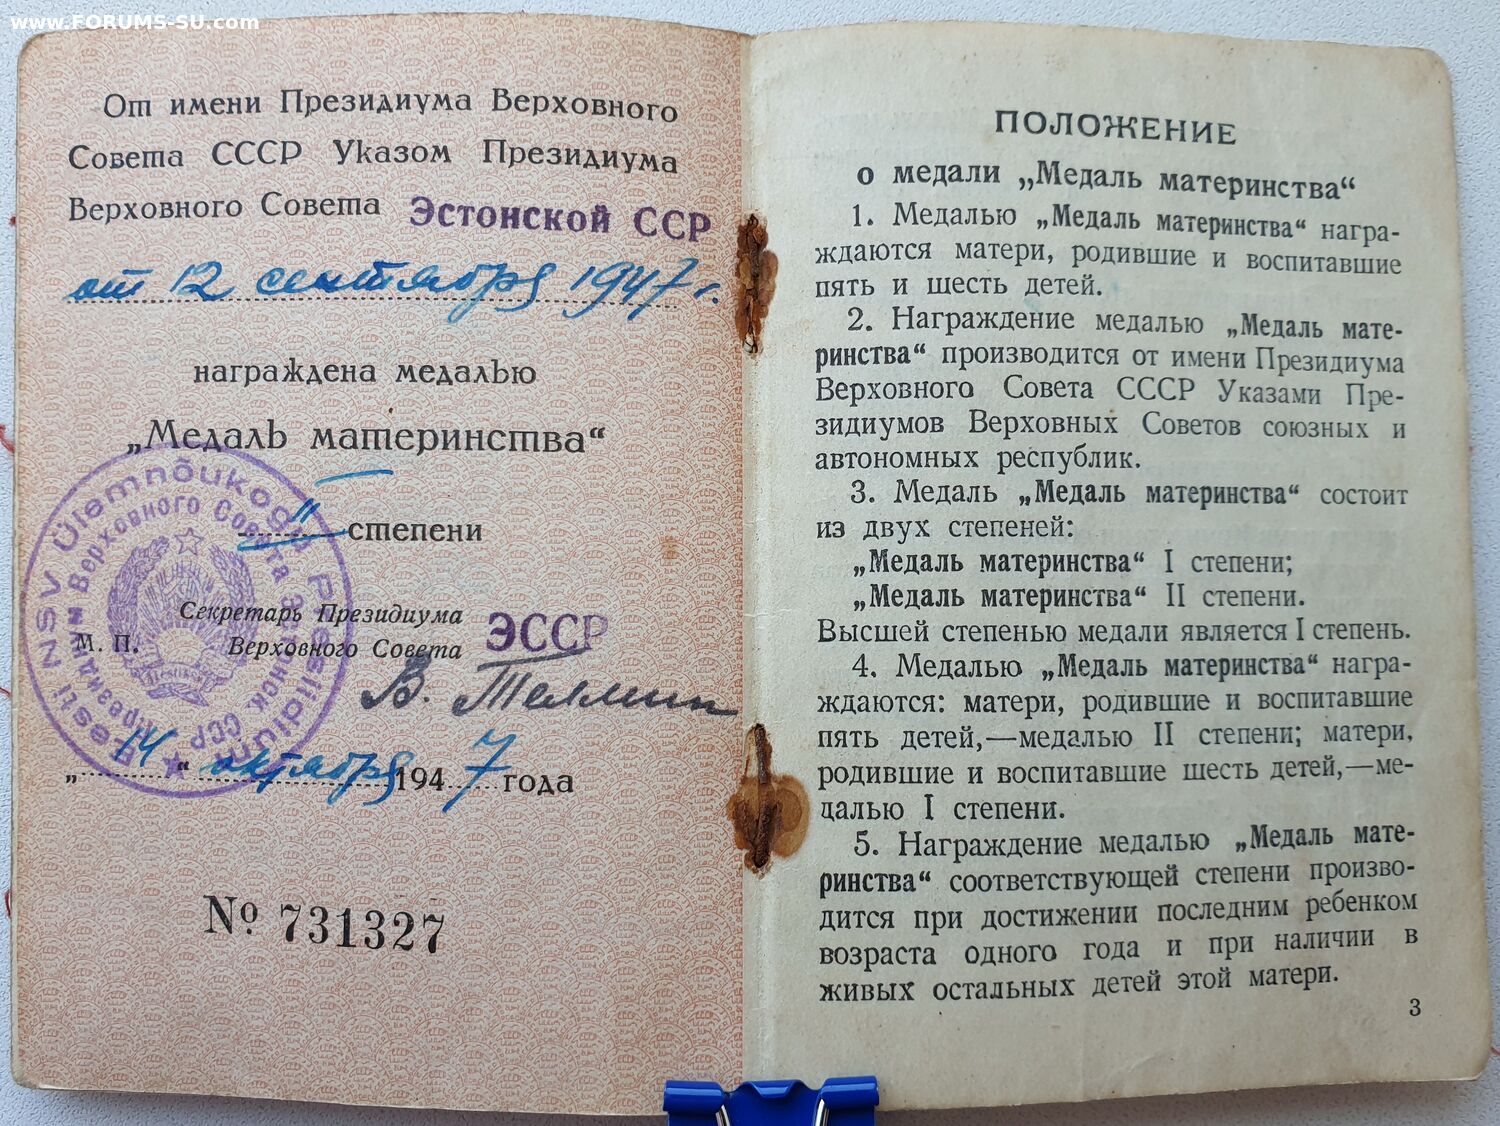 www.FORUMS-SU.com
От имени Президиума Верховного
Совета СССР Указом Президиума
Верховного Совета Эстонской ССР
от 12 сентября 1947 г.
награждена медалью
„Медаль материнства“
II степени
Секретарь Президиума
Верховного Совета ЭССР
М. П.
В. Телминг
„14“ октября 1947 года
№ 731327
Eesti NSV Ülemnõukogu Presiidium
Президиум Верховного Совета Эстонск. ССР
ПОЛОЖЕНИЕ
о медали „Медаль материнства“
1. Медалью „Медаль материнства“ награ-
ждаются матери, родившие и воспитавшие
пять и шесть детей.
2. Награждение медалью „Медаль мате-
ринства“ производится от имени Президиума
Верховного Совета СССР Указами Пре-
зидиумов Верховных Советов союзных и
автономных республик.
3. Медаль „Медаль материнства“ состоит
из двух степеней:
„Медаль материнства“ I степени;
„Медаль материнства“ II степени.
Высшей степенью медали является I степень.
4. Медалью „Медаль материнства“ награ-
ждаются: матери, родившие и воспитавшие
пять детей,—медалью II степени; матери,
родившие и воспитавшие шесть детей,—ме-
далью I степени.
5. Награждение медалью „Медаль мате-
ринства“ соответствующей степени произво-
дится при достижении последним ребенком
возраста одного года и при наличии в
живых остальных детей этой матери.
3